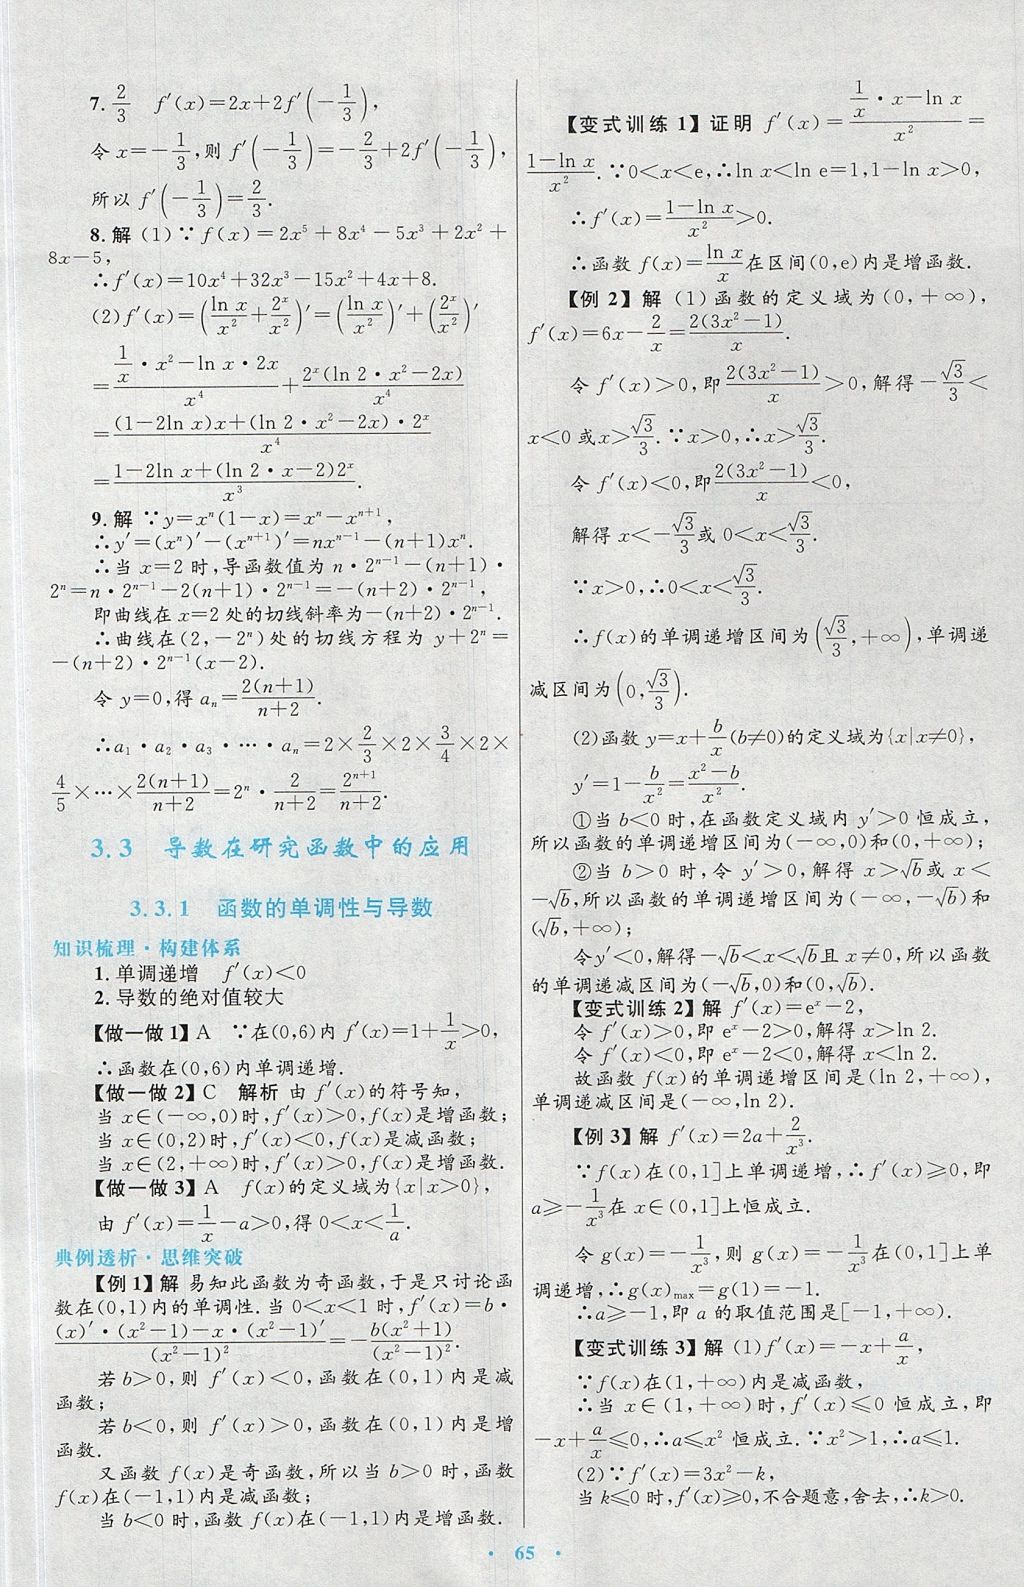 7. 2/3　f′(x)=2x+2f′(-1/3),
令 x=-1/3,则 f′(-1/3)=-2/3+2f′(-1/3),
所以 f′(-1/3)=2/3.
8.解 (1)∵f(x)=2x⁵+8x⁴-5x³+2x²+
8x-5,
∴f′(x)=10x⁴+32x³-15x²+4x+8.
(2)f′(x)=(ln x/x²+2ˣ/x²)′=(ln x/x²)′+(2ˣ/x²)′
=(1/x·x²-ln x·2x)/x⁴+2ˣ(ln 2·x²-2x)/x⁴
=((1-2ln x)x+(ln 2·x²-2x)·2ˣ)/x⁴
=(1-2ln x+(ln 2·x-2)2ˣ)/x³.
9.解 ∵y=xⁿ(1-x)=xⁿ-xⁿ⁺¹,
∴y′=(xⁿ)′-(xⁿ⁺¹)′=nxⁿ⁻¹-(n+1)xⁿ.
∴当 x=2 时,导函数值为 n·2ⁿ⁻¹-(n+1)·
2ⁿ=n·2ⁿ⁻¹-2(n+1)·2ⁿ⁻¹=-(n+2)·2ⁿ⁻¹,
即曲线在 x=2 处的切线斜率为-(n+2)·2ⁿ⁻¹.
∴曲线在(2,-2ⁿ)处的切线方程为 y+2ⁿ=
-(n+2)·2ⁿ⁻¹(x-2).
令 y=0,得 aₙ=2(n+1)/(n+2).
∴a₁·a₂·a₃·…·aₙ=2×2/3×2×3/4×2×
4/5×…×2(n+1)/(n+2)=2ⁿ·2/(n+2)=2ⁿ⁺¹/(n+2).
3.3　导数在研究函数中的应用
3.3.1　函数的单调性与导数
知识梳理·构建体系
1.单调递增　f′(x)<0
2.导数的绝对值较大
【做一做1】A　∵在(0,6)内 f′(x)=1+1/x>0,
∴函数在(0,6)内单调递增.
【做一做2】C　解析 由 f′(x)的符号知,
当 x∈(-∞,0)时,f′(x)>0,f(x)是增函数;
当 x∈(0,2)时,f′(x)<0,f(x)是减函数;
当 x∈(2,+∞)时,f′(x)>0,f(x)是增函数.
【做一做3】A　f(x)的定义域为{x|x>0},
由 f′(x)=1/x-a>0,得 0<x<1/a.
典例透析·思维突破
【例1】解 易知此函数为奇函数,于是只讨论函
数在(0,1)内的单调性.当 0<x<1 时,f′(x)=b·
((x)′·(x²-1)-x·(x²-1)′)/(x²-1)²=-b(x²+1)/(x²-1)².
若 b>0,则 f′(x)<0,函数在(0,1)内是减
函数;
若 b<0,则 f′(x)>0,函数在(0,1)内是增
函数.
又函数 f(x)是奇函数,所以当 b>0 时,函数
f(x)在(-1,1)内是减函数;
当 b<0 时,函数 f(x)在(-1,1)内是增函数.
【变式训练1】证明 f′(x)=(1/x·x-ln x)/x²=
(1-ln x)/x².∵0<x<e,∴ln x<ln e=1,1-ln x>0,
∴f′(x)=(1-ln x)/x²>0.
∴函数 f(x)=ln x/x在区间(0,e)内是增函数.
【例2】解 (1)函数的定义域为(0,+∞),
f′(x)=6x-2/x=2(3x²-1)/x.
令 f′(x)>0,即2(3x²-1)/x>0,解得-√3/3<
x<0 或 x>√3/3.∵x>0,∴x>√3/3.
令 f′(x)<0,即2(3x²-1)/x<0,
解得 x<-√3/3或 0<x<√3/3.
∵x>0,∴0<x<√3/3.
∴f(x)的单调递增区间为(√3/3,+∞),单调递
减区间为(0,√3/3).
(2)函数 y=x+b/x(b≠0)的定义域为{x|x≠0},
y′=1-b/x²=(x²-b)/x².
①当 b<0 时,在函数定义域内 y′>0 恒成立,
所以函数的单调递增区间为(-∞,0)和(0,+∞);
②当 b>0 时,令 y′>0,解得 x>√b或 x<
-√b,所以函数的单调递增区间为(-∞,-√b)和
(√b,+∞);
令y′<0,解得-√b<x<√b且 x≠0,所以函数
的单调递减区间为(-√b,0)和(0,√b).
【变式训练2】解 f′(x)=eˣ-2,
令 f′(x)>0,即 eˣ-2>0,解得 x>ln 2.
令 f′(x)<0,即 eˣ-2<0,解得 x<ln 2.
故函数 f(x)的单调递增区间是(ln 2,+∞),
单调递减区间是(-∞,ln 2).
【例3】解 f′(x)=2a+2/x³.
∵f(x)在(0,1]上单调递增,∴f′(x)≥0,即
a≥-1/x³在 x∈(0,1]上恒成立.
令 g(x)=-1/x³,则 g(x)=-1/x³在(0,1]上单
调递增,∴g(x)max=g(1)=-1.
∴a≥-1,即 a 的取值范围是[-1,+∞).
【变式训练3】解 (1)f′(x)=-x+a/x,
∵f(x)在(1,+∞)内是减函数,
∴当 x∈(1,+∞)时,f′(x)≤0 恒成立,即
-x+a/x≤0,∴a≤x² 恒成立.∵x²>1,∴a≤1.
(2)∵f′(x)=3x²-k,
当 k≤0 时,f′(x)≥0,不合题意,舍去,∴k>0.
· 65 ·